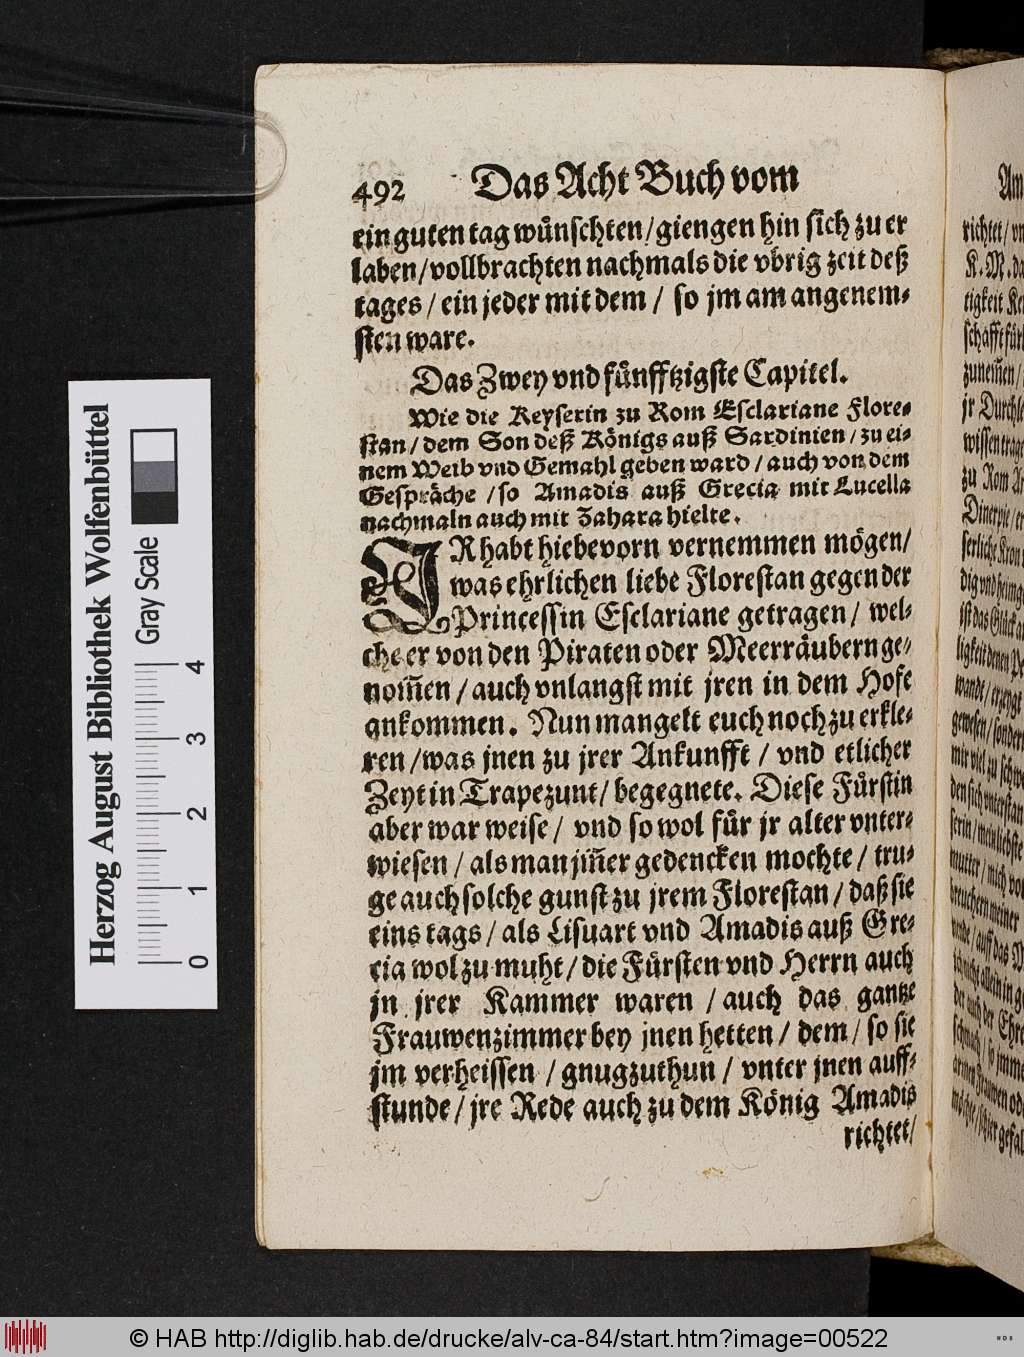 492 Das Acht Buch vom
ein guten tag wünschten/giengen hin sich zu er
laben/vollbrachten nachmals die vbrig zeit deß
tages/ein jeder mit dem/so jm am angenem-
sten ware.
Das Zwey vnd fünfftzigste Capitel.
Wie die Keyserin zu Rom Esclariane Flore-
stan/dem Son deß Königs auß Sardinien/zu ei-
nem Weib vnd Gemahl geben ward/auch von dem
Gespräche/so Amadis auß Grecia mit Lucella
nachmaln auch mit Zahara hielte.
IR habt hiebevorn vernemmen mögen/
was ehrlichen liebe Florestan gegen der
Princessin Esclariane getragen/wel-
che er von den Piraten oder Meerräubern ge-
nom̃en/auch vnlangst mit jren in dem Hofe
ankommen. Nun mangelt euch noch zu erkle-
ren/was jnen zu jrer Ankunfft/vnd etlicher
Zeyt in Trapezunt/begegnete. Diese Fürstin
aber war weise/vnd so wol für jr alter vnter-
wiesen/als man jm̃er gedencken mochte/tru-
ge auch solche gunst zu jrem Florestan/daß sie
eins tags/als Lisuart vnd Amadis auß Gre-
cia wol zu muht/die Fürsten vnd Herrn auch
jn jrer Kammer waren/auch das gantze
Frauwenzimmer bey jnen hetten/dem/so sie
jm verheissen/gnugzuthun/vnter jnen auff-
stunde/jre Rede auch zu dem König Amadis
richtet/
Am
richtet/vn
K. M. da
tigkeit Ke
schafft für
zunem̃en/
jr Durchle
wissen trage
zu Rom
Herzog August Bibliothek Wolfenbüttel
Gray Scale
0 1 2 3 4
© HAB http://diglib.hab.de/drucke/alv-ca-84/start.htm?image=00522